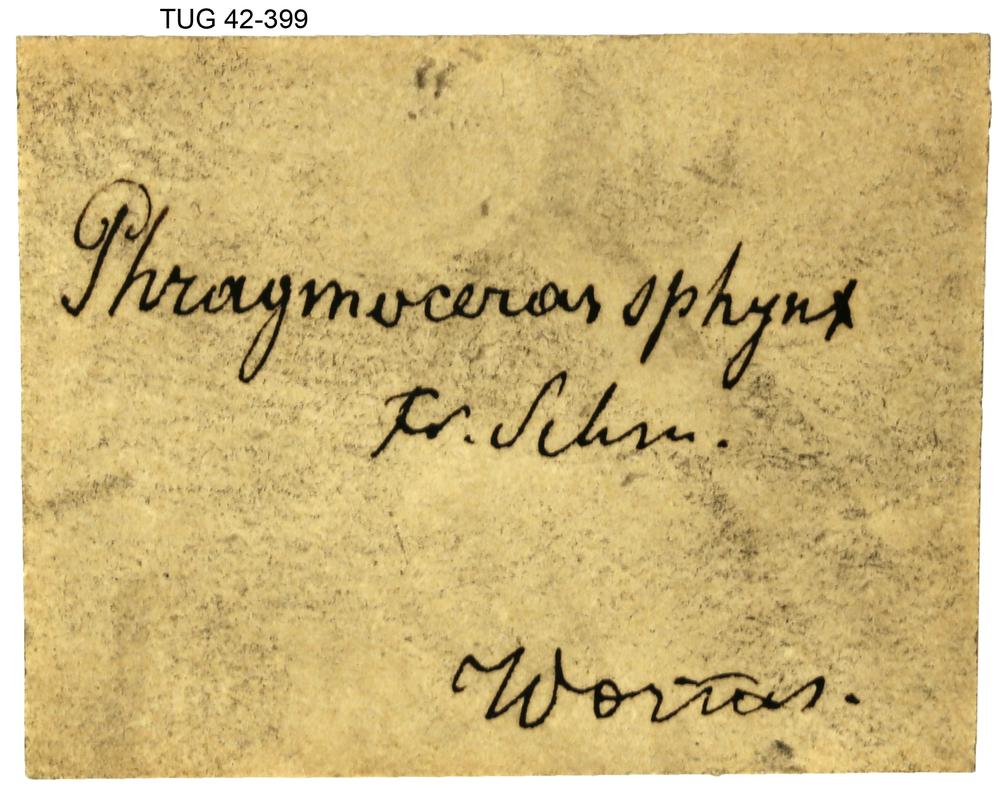 TUG 42-399
Phragmoceras sphynx
Fr. Schm.
Worms.